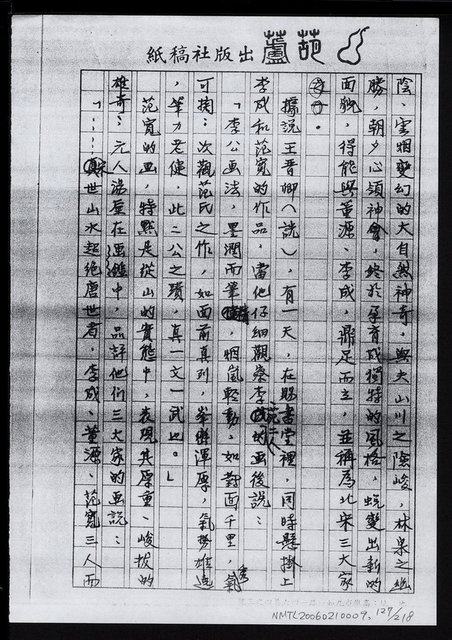 葫蘆出版社稿紙
陰、雲烟變幻的大自然神奇，與大山川之陰峻，林泉之幽
勝，朝夕心領神會，終於孕育成獨特的風格，蜕變出新的
面貌，得能與董源、李成，鼎足而立，並稱為北宋三大家
。
據說王晋卿（詵），有一天，在賜書堂裡，同時懸掛上
李成和范寬的作品，當他仔細觀察李成的画後說：
「李公画法，墨潤而筆精，烟嵐輕動，如對面千里，秀氣
可掬；次觀范氏之作，如面前真列，峯巒渾厚，氣勢雄逸
，筆力老健，此二公之蹟，真一文一武也。」
范寬的画，特點是從山的實態中，表現其厚重、峻拔的
雄奇；元人湯垕在画鑑中，品評他們三大家的画說：
「……宋世山水超絶唐世者，李成、董源、范寬三人而
NMTL20060210009, 127/218